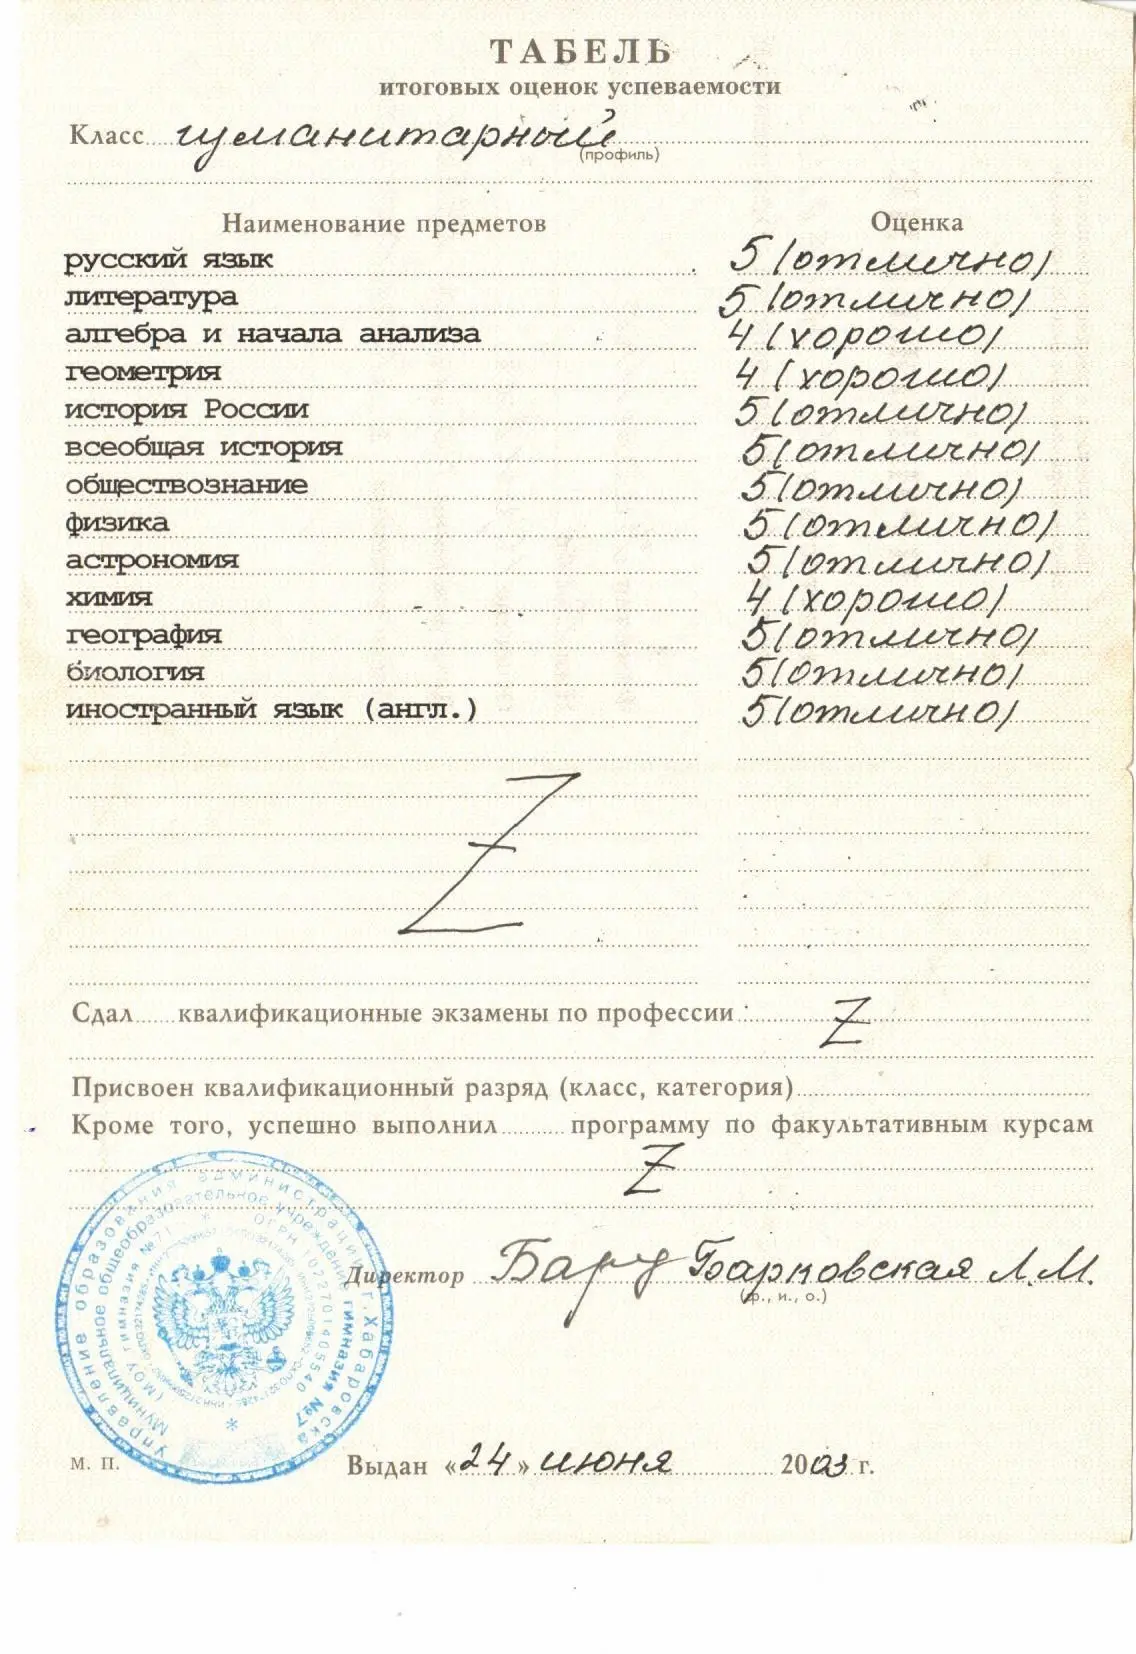 ТАБЕЛЬ
итоговых оценок успеваемости
Класс гуманитарный
(профиль)
Наименование предметов Оценка
русский язык 5 (отлично)
литература 5 (отлично)
алгебра и начала анализа 4 (хорошо)
геометрия 4 (хорошо)
история России 5 (отлично)
всеобщая история 5 (отлично)
обществознание 5 (отлично)
физика 5 (отлично)
астрономия 5 (отлично)
химия 4 (хорошо)
география 5 (отлично)
биология 5 (отлично)
иностранный язык (англ.) 5 (отлично)
Z
Сдал......квалификационные экзамены по профессии Z
Присвоен квалификационный разряд (класс, категория)
Кроме того, успешно выполнил..........программу по факультативным курсам
Z
Управление образования администрации г. Хабаровска
Муниципальное общеобразовательное учреждение гимназия №7
(МОУ гимназия №7) * ОГРН 1022701405540
Директор Барковская Л.М.
(ф., и., о.)
М. П.
Выдан «24» июня 2003 г.